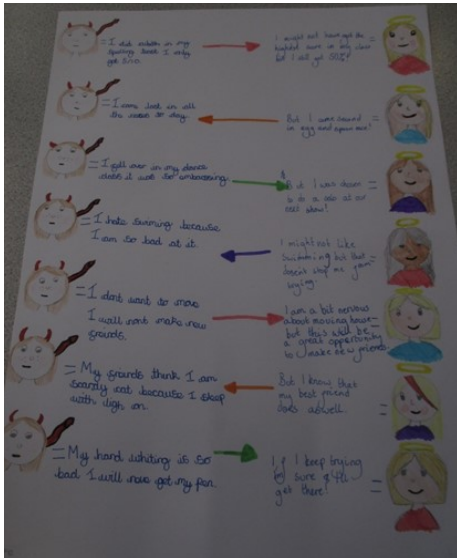 = I did rubbish in my
spelling test I only
got 5/10.
I might not have got the
highest score in my class
but I still got
= I came last in all
the races to day.
But I came second =
in egg and spoon race!
= I fell over in my dance
class it was so embarrasing.
But I was chosen =
to do a solo at our
next show!
= I hate swimming because
I am so bad at it.
I might not like =
swimming but that
doesn't stop me from
trying.
= I dont want to move
I will not make new
friends.
I am a bit nervous
about moving house =
but this will be
a great opportunity
to make new friends.
= My friends think I am
scardy cat because I sleep
with ligh on.
But I know that =
my best friend
does aswell.
= My hand whiting is so
bad I will never get my pen.
If I keep trying
sure I'll =
get there!